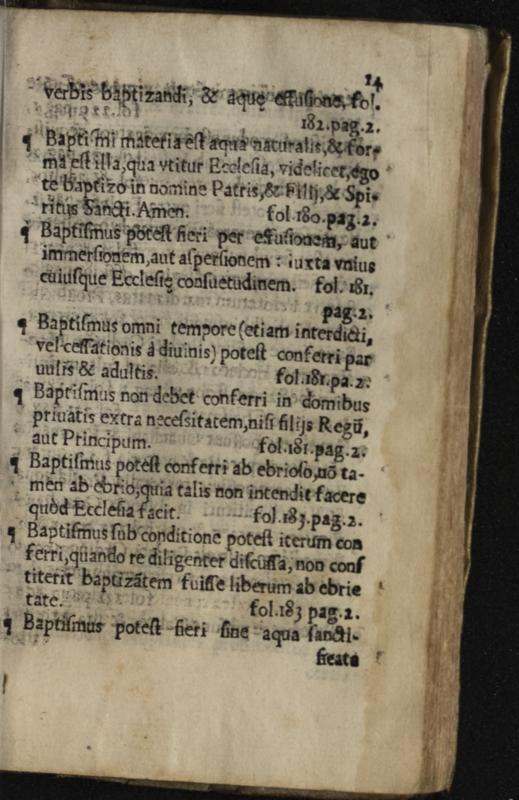 14
verbis baptizandi, & aquę effusione, fol.
182.pag.2.
¶ Baptismi materia est aqua naturalis,& for-
ma est illa,qua vtitur Ecclesia, videlicet,ego
te baptizo in nomine Patris,& Filij,& Spi-
ritus Sancti. Amen. fol.180.pag.2.
¶ Baptismus potest fieri per effusionem, aut
immersionem,aut aspersionem : iuxta vnius
cuiusque Ecclesię consuetudinem. fol. 181.
pag.2.
¶ Baptismus omni tempore (etiam interdicti,
vel cessationis á diuinis) potest conferri par
uulis & adultis. fol.181.pa.2.
¶ Baptismus non debet conferri in domibus
priuatis extra necessitatem,nisi filijs Regũ,
aut Principum. fol.181.pag.2.
¶ Baptismus potest conferri ab ebrioso,nõ ta-
men ab ebrio,quia talis non intendit facere
quòd Ecclesia facit. fol.183.pag.2.
¶ Baptismus sub conditione potest iterum con
ferri,quando re diligenter discussa, non cons
titerit baptizãtem fuisse liberum ab ebrie
tate. fol.183 pag.2.
¶ Baptismus potest fieri sine aqua sancti-
ficata